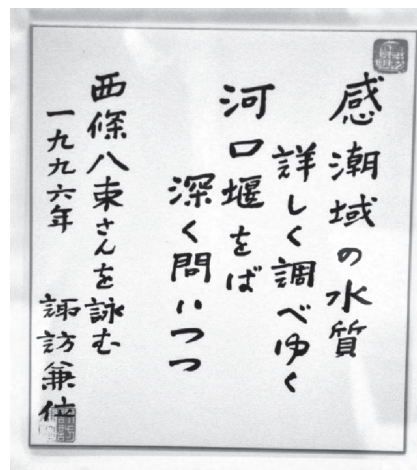 感潮域の水質
詳しく調べゆく
河口堰をば
深く問いつつ
西條八束さんを詠む
一九九六年
諏訪兼位